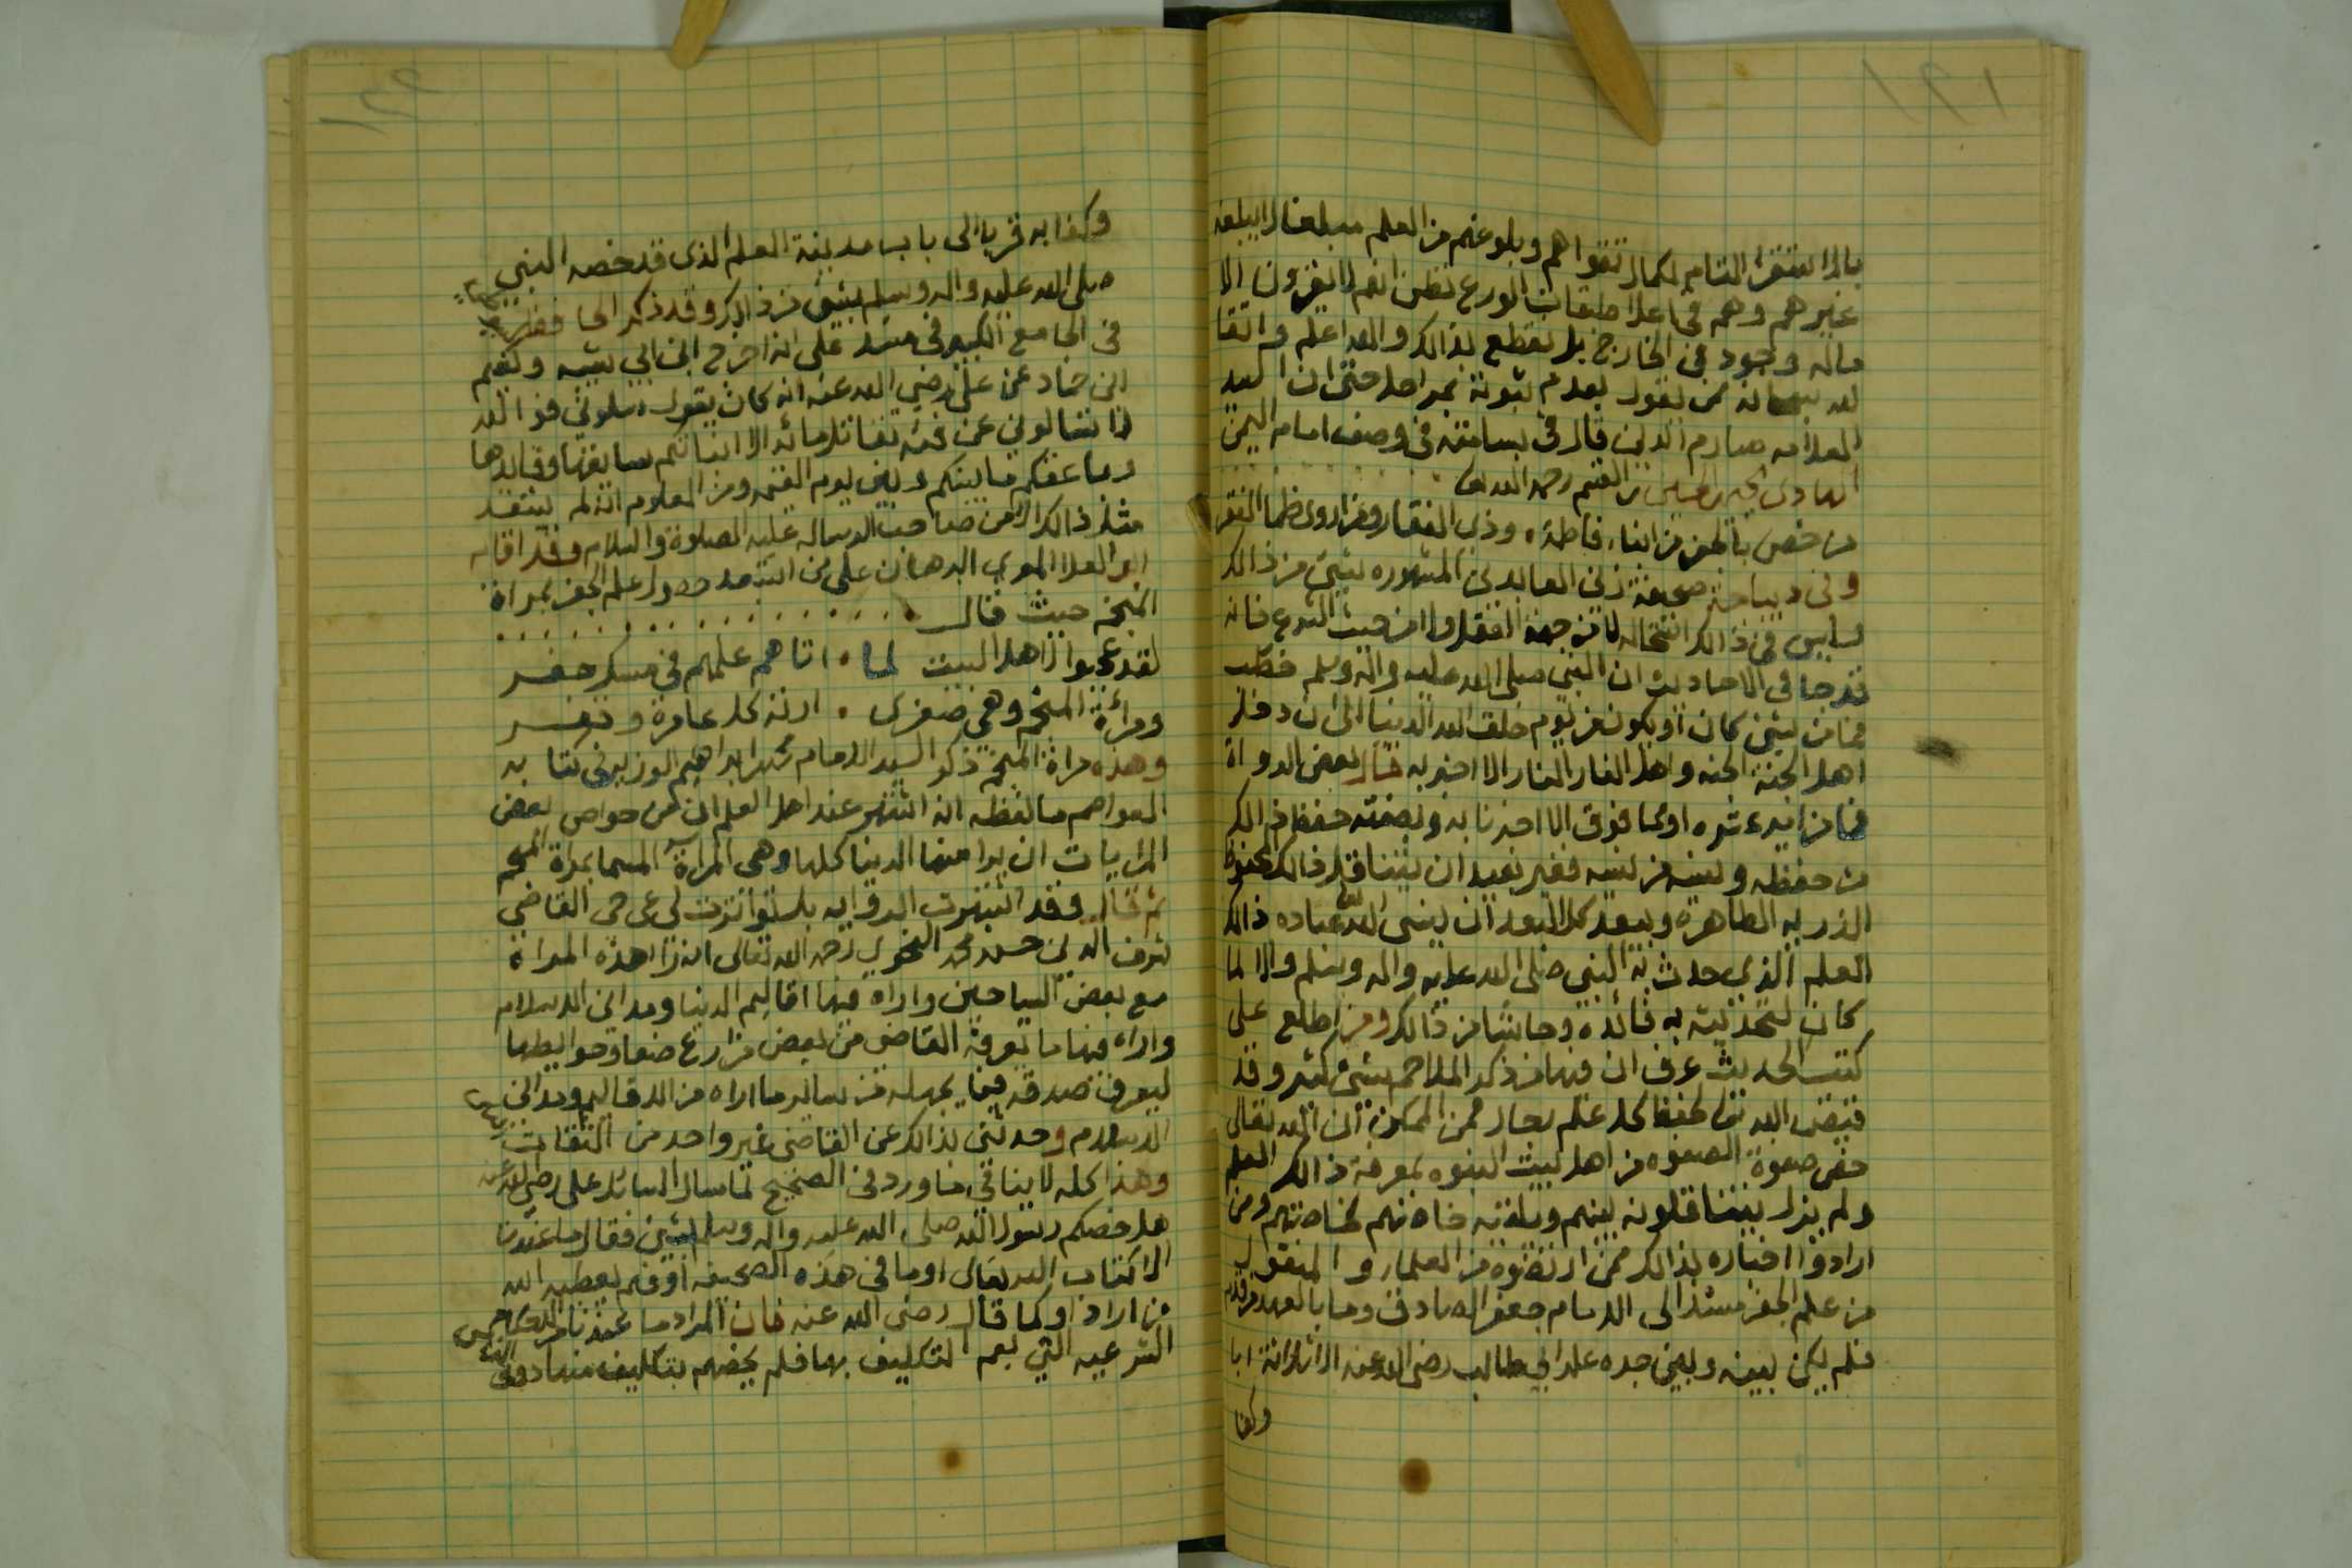 ١٩١
بالاستقرا التام لكمال تقواهم وبلوغهم من العلم مبلغا لا يبلغه
غيرهم وهم في اعلا طبقات الورع نظن انهم لا يغرون الا
ماله وجود في الخارج بل نقطع بذالك والله اعلم
لله ممن نقول بعدم ثبوته بمراحل حتى ان السيد
العلامه صارم الدين قال في بسامته في وصف امام اليمن
الهادي يحيى بن الحسين بن القسم رحمه الله
من خص بالجفر من ابناء فاطمة، وذي الفقار ومن اروى ظما الفقر
وفي ديباجة صحيفة زين العابدين المشهوره بشي من ذالك
وليس في ذالك استحاله لا من جهة العقل ولا من حيث الشرع فانه
قد جا في الاحاديث ان النبي صلى الله عليه واله وسلم خطب
فما من شي كان او يكون من يوم خلق الله الدنيا الى ان دخل
اهل الجنة الجنه واهل النار النار الا اخبر به قال بعض الرواة
فما من اميرعشره او فما فوق الا اخبرنا به وبصفته حفظ ذالك
من حفظه ونسيه من نسيه فغير بعيد ان يتناقل ذالك
الذريه الطاهره ويبعد كل البعد ان ينسي الله عباده ذالك
العلم الذي حدث به النبي صلى الله عليه واله وسلم والا لما
كان لتحديثه به فائده وحاشا من ذالك ومن اطلع على
كتب الحديث عرف ان فيها من ذكر الملاحم بشي كثير وقد
قيض الله تعا لحفظ كل علم رجال فمن الممكن ان الله تعالى
خص صفوة الصفوه من اهل بيت النبوه بمعرفة ذالك العلم
ولم يزل يتناقلونه بينهم وتلقنه خاصتهم لخاصتهم ومن
ارادوا اخباره بذالك ممن ارتضوه من العلما والمنقول
من علم الجفر مسندا الى الامام جعفر الصادق وما بالعهد من قدم
فلم يكن بينه وبين جده علي ابي طالب رضي الله عنه الا ثلاثة ابا
وكفا
وكفا به قربا الى باب مدينة العلم الذي قد خصه النبي
صلى الله عليه واله وسلم بشي من ذالك وقد ذكر الحافظ
في الجامع الكبير في مسند علي انه اخرج ابن ابي شيبه ونعيم
ابن حماد عن علي رضي الله عنه انه كان يقول سلوني فوالله
لا تسالوني عن فئه تقاتل مائه الا انباتكم بسايقها وقايدها
وما عقكم ما بينكم وبين يوم القيمه ومن المعلوم انه لم يستفد
مثل ذالك الا من صاحب الرساله عليه الصلوة والسلام وقد اقام
ابو العلا المعري البرهان على من استبعد حصول علم الجفر بمراة
المنجم حيث قال
لقد عجبوا لاهل البيت لما ، اتاهم علمهم في مسك جفر
ومراءة المنجم وهي صغرى ، ارته كل عامرة وقفر
وهذه مراة المنجم ذكر السيد الامام محمد ابراهيم الوزير في كتابه
العواصم ما لفظه انه اشتهر عند اهل العلم ان من خواص بعض
المرايات ان يرا منها الدنيا كلها وهي المراة المسما بمراة المنجم
ثم قال وقد اشتهرت الروايه بل تواترت لي عن حي القاضي
شرف الدين حسن محمد النحوي رحمه الله تعالى انه را هذه المراة
مع بعض السياحين واراه فيها اقاليم الدنيا ومدائن الاسلام
واراه فيها ما يعرفه القاضي من بعض مزارع صنعا وحوايطها
ليعرف صدقه فيما يجهله من ساير ما اراه من الاقاليم ومدائن
الاسلام وحدثني بذالك عن القاضي غير واحد من الثقات
وهذا كله لا ينافي ما ورد في الصحيح لما سال السائل علي رضي الله عنه
هل خصكم رسول الله صلى الله عليه واله وسلم بشي فقال ما عندنا
الا كتاب الله تعالى او ما في هذه الصحيفه او فهم يعطيه الله
من اراد او كما قال رضي الله عنه فان المراد ما عندنا من الاحكام
الشرعيه التي يعم التكليف بها فلم يخصهم بتكليف منها دون